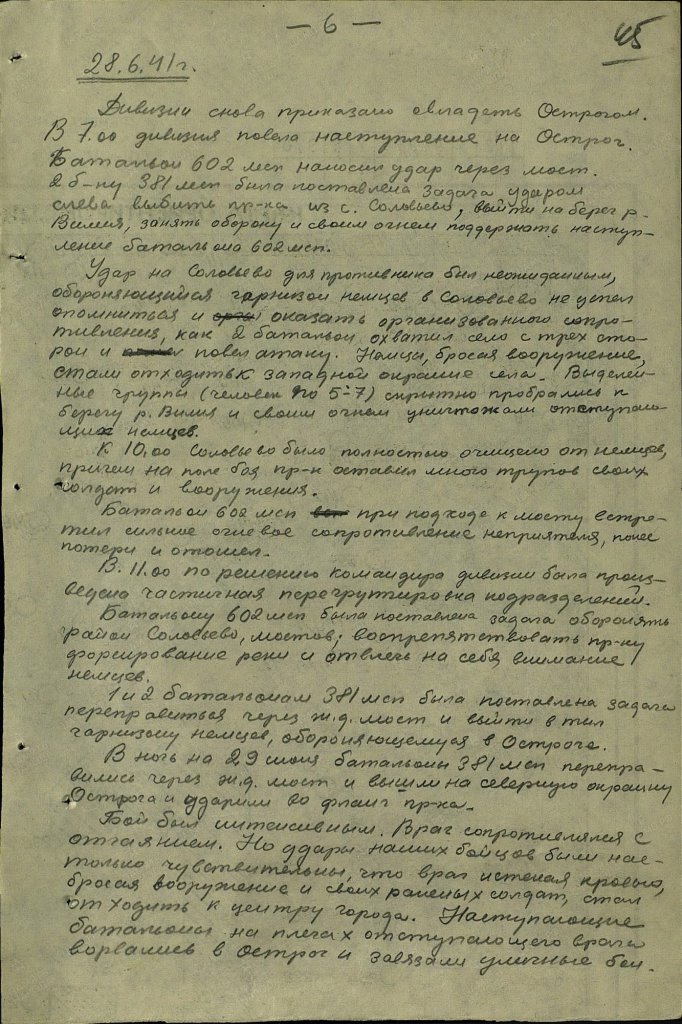 — 6 —
45
28.6.41 г.
Дивизии снова приказано овладеть Острогом.
В 7.00 дивизия повела наступление на Острог.
Батальон 602 мсп наносил удар через мост.
2 б-ну 381 мсп была поставлена задача ударом
слева выбить пр-ка из с. Соловьево, выйти на берег р.
Вилия, занять оборону и своим огнем поддержать наступ-
ление батальона 602 мсп.
Удар на Соловьево для противника был неожиданным,
обороняющийся гарнизон немцев в Соловьево не успел
опомниться и оказать организованного сопро-
тивления, как 2 батальон охватил село с трех сто-
рон и повел атаку. Немцы, бросая вооружение,
стали отходить к западной окраине села. Выделен-
ные группы (человек по 5-7) скрытно пробрались к
берегу р. Вилия и своим огнем уничтожали отступаю-
щих немцев.
К 10.00 Соловьево было полностью очищено от немцев,
причем на поле боя пр-к оставил много трупов своих
солдат и вооружения.
Батальон 602 мсп при подходе к мосту встре-
тил сильное огневое сопротивление неприятеля, понес
потери и отошел.
В 11.00 по решению командира дивизии была произ-
ведена частичная перегруппировка подразделений.
Батальону 602 мсп была поставлена задача оборонять
район Соловьево, мостов; воспрепятствовать пр-ку
форсирование реки и отвлечь на себя внимание
немцев.
1 и 2 батальонам 381 мсп была поставлена задача
переправиться через ж.д. мост и выйти в тыл
гарнизону немцев, обороняющемуся в Остроге.
В ночь на 29 июня батальоны 381 мсп перепра-
вились через ж.д. мост и вышли на северную окраину
Острога и ударили во фланг пр-ка.
Бой был интенсивным. Враг сопротивлялся с
отчаянием. Но удары наших бойцов были нас-
только чувствительны, что враг истекая кровью,
бросая вооружение и своих раненых солдат, стал
отходить к центру города. Наступающие
батальоны на плечах отступающего врага
ворвались в Острог и завязали уличные бои.